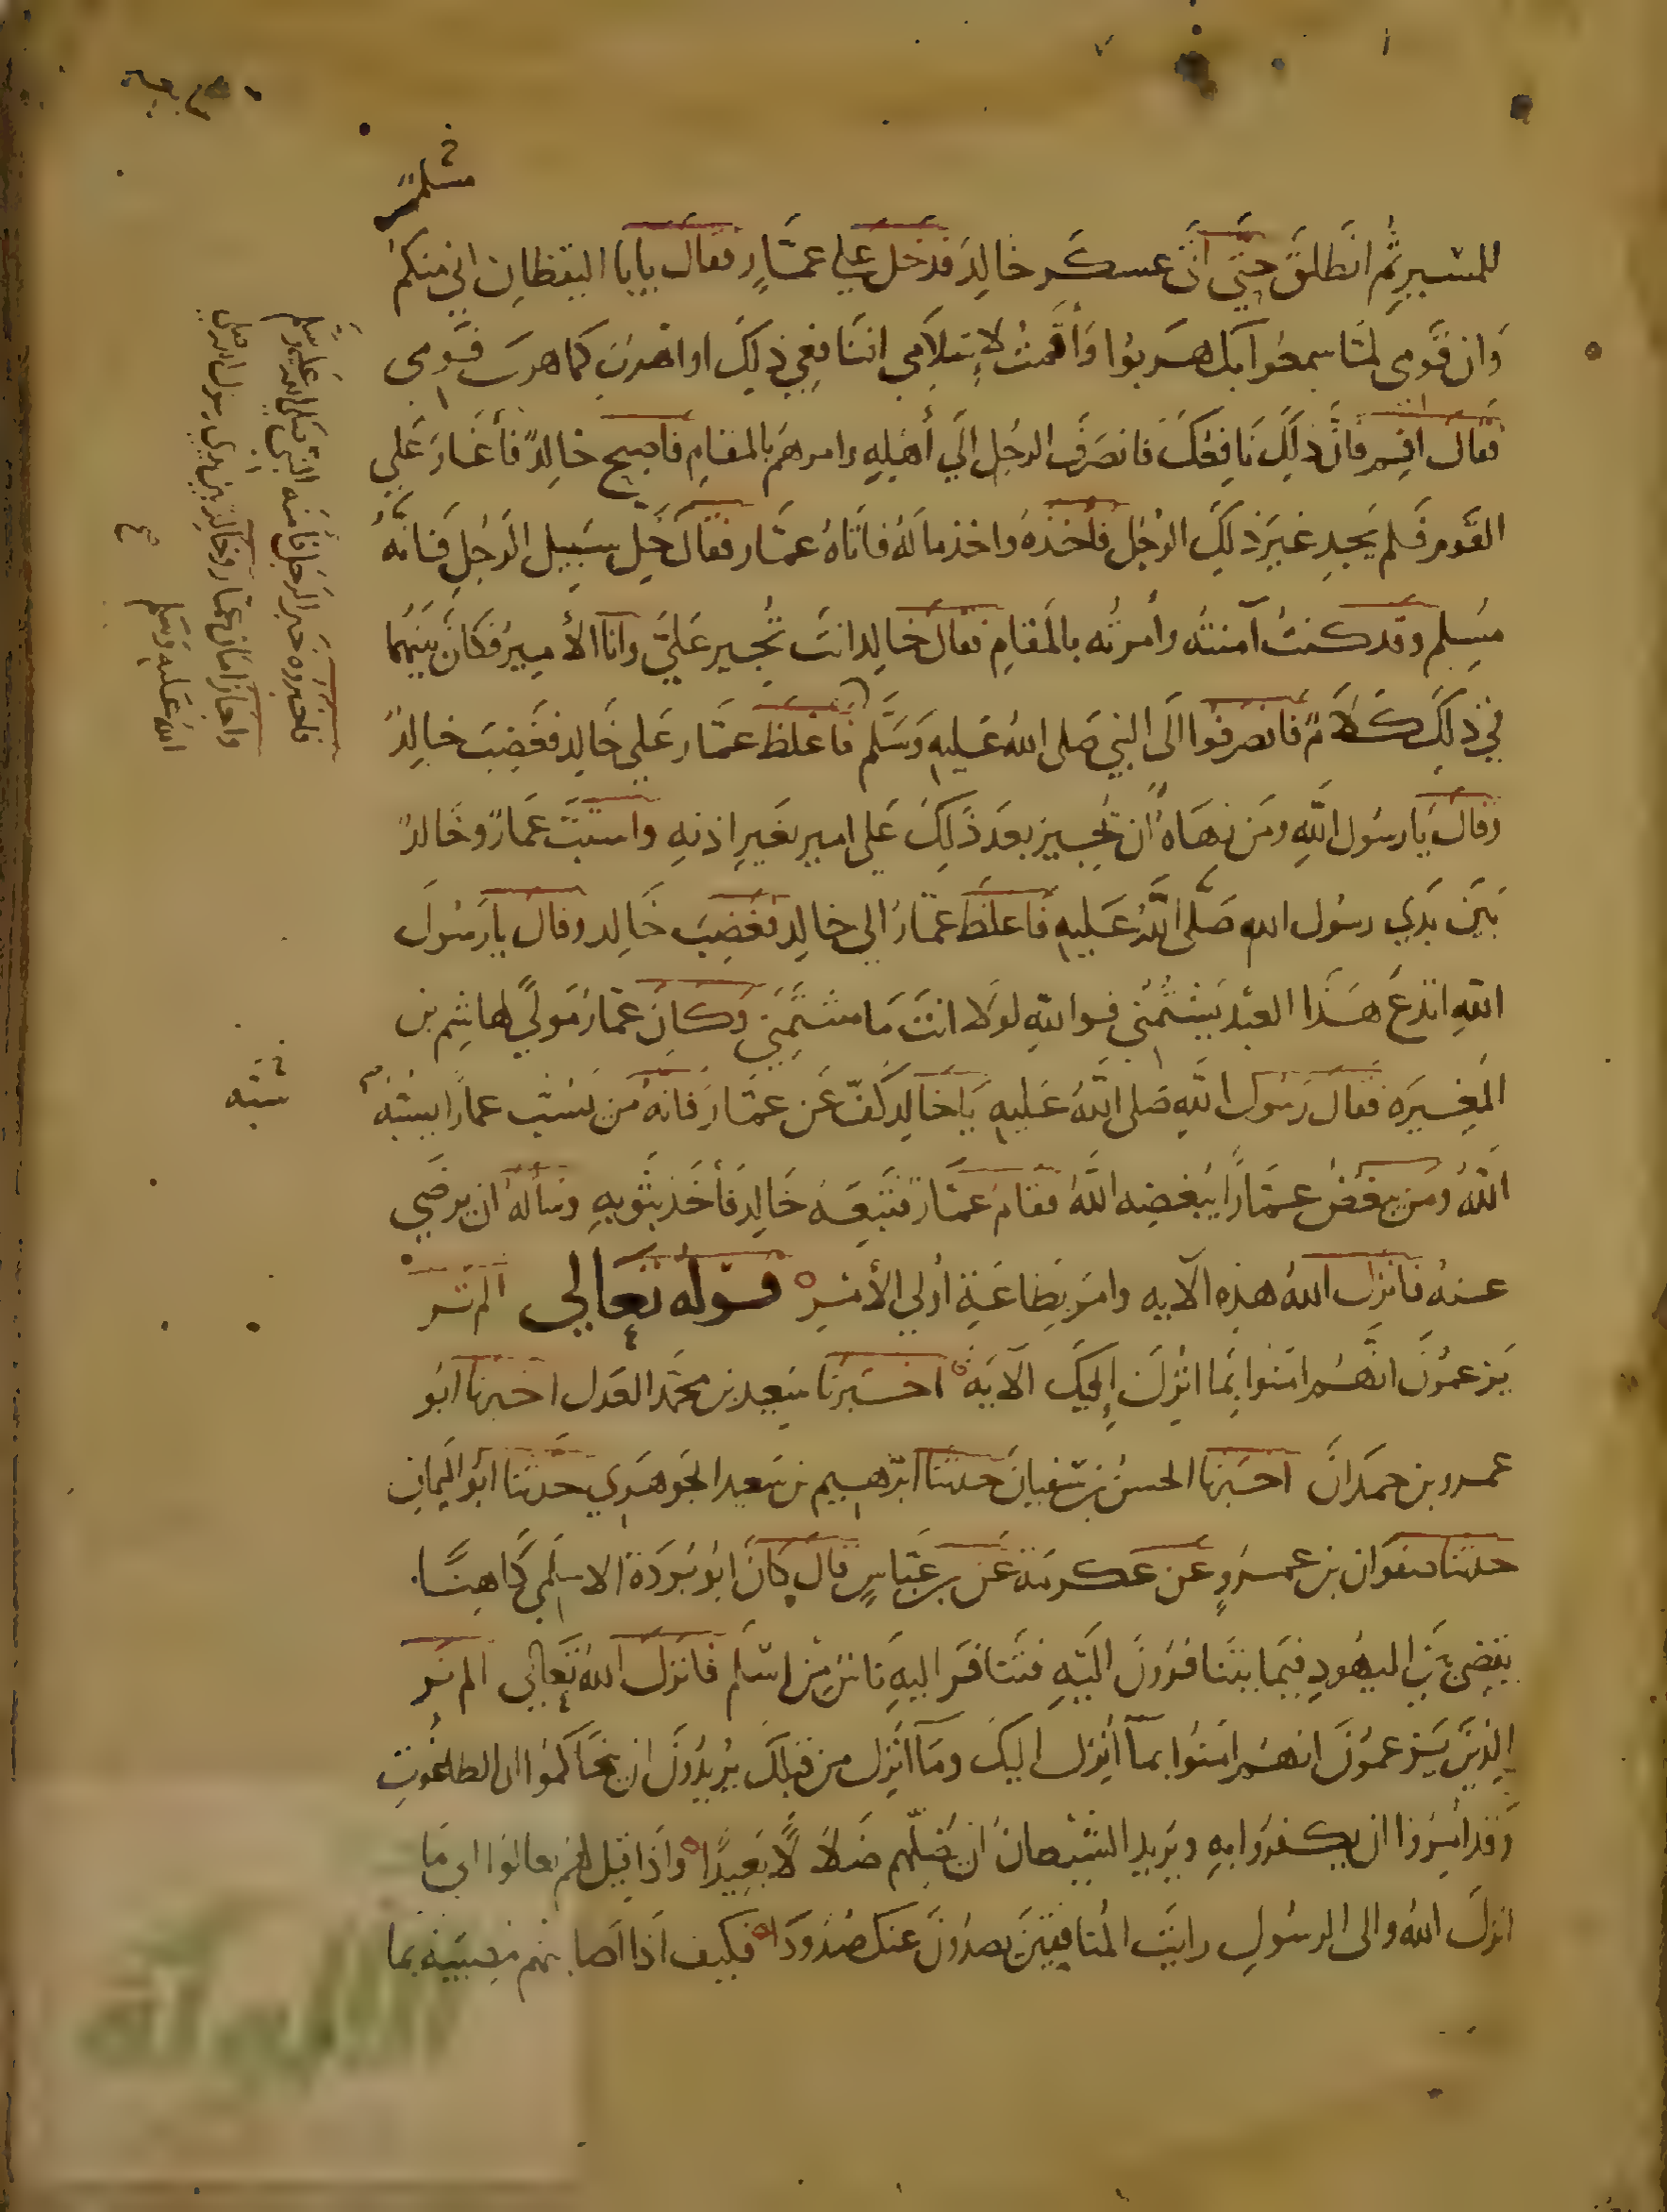 مسلم
للمسير ثم انطلق حتى اتى عسكر خالد فدخل علي عمار فقال يا با اليقظان اني منكم
وان قومي لما سمعوا بك هربوا وأقمت لإسلامي انافعي ذلك او اهرب كما هرب قومي
فقال اقم فان ذلك نافعك فانصرف الرجل الي أهله وامرهم بالمقام فاصبح خالد فأغار علي
القوم فلم يجد غير ذلك الرجل فأخذه واخذ ماله فأتاه عمار فقال خل سبيل الرجل فانه
مسلم وقد كنت آمنته وأمرته بالمقام فقال خالد انت تجير علي وانا الأمير فكان بينهما
في ذلك كلام فانصرفوا الى النبي صلى الله عليه وسلم فاغلظ عمار علي خالد فغضب خالد
وقال يا رسول الله ومن نهاه ان تجير بعد ذلك علي امير بغير اذنه واستب عمار وخالد
بين يدي رسول الله صلى الله عليه فاغلظ عمار الي خالد فغضب خالد وقال يا رسول
الله اتدع هذا العبد يشتمني فوالله لولا انت ما شتمني وكان عمار مولي لهاشم بن
المغيره فقال رسول الله صلى الله عليه يا خالد كف عن عمار فانه من يسب عمارا يسبه
الله ومن يبغض عمارا يبغضه الله فقام عمار فتبعه خالد فأخذ بثوبه وسأله ان يرضي
عنه فانزل الله هذه الآيه وامر بطاعة أولي الأمر قوله تعالي الم تر
يزعمون انهم امنوا بما انزل إليك الآية اخبرنا سعيد بن محمد العدل اخبرنا ابو
عمرو بن حمدان اخبرنا الحسن بن سفيان حدثنا ابرهيم بن سعيد الجوهري حدثنا ابو اليمان
حدثنا صفوان بن عمرو عن عكرمة عن بن عباس قال كان ابو بردة الاسلمي كاهنا
يقضي بين اليهود فيما يتنافرون اليه فتنافر اليه ناس من اسلم فانزل الله تعالي الم تر
الذين يزعمون انهم امنوا بما أنزل اليك وما انزل من قبلك يريدون ان يتحاكموا الى الطاغوت
وقد أمروا ان يكفروا به ويريد الشيطان ان يضلهم ضلالا بعيدا واذا قيل لهم تعالوا الى ما
انزل الله والى الرسول رايت المنافقين يصدون عنك صدودا فكيف اذا اصابتهم مصيبة بما
فاخبروه خبر الرجل فأمنه النبي صلى الله عليه وسلم
واجاز امان عمار
الله عليه وسلم
يسبه
الألوكة